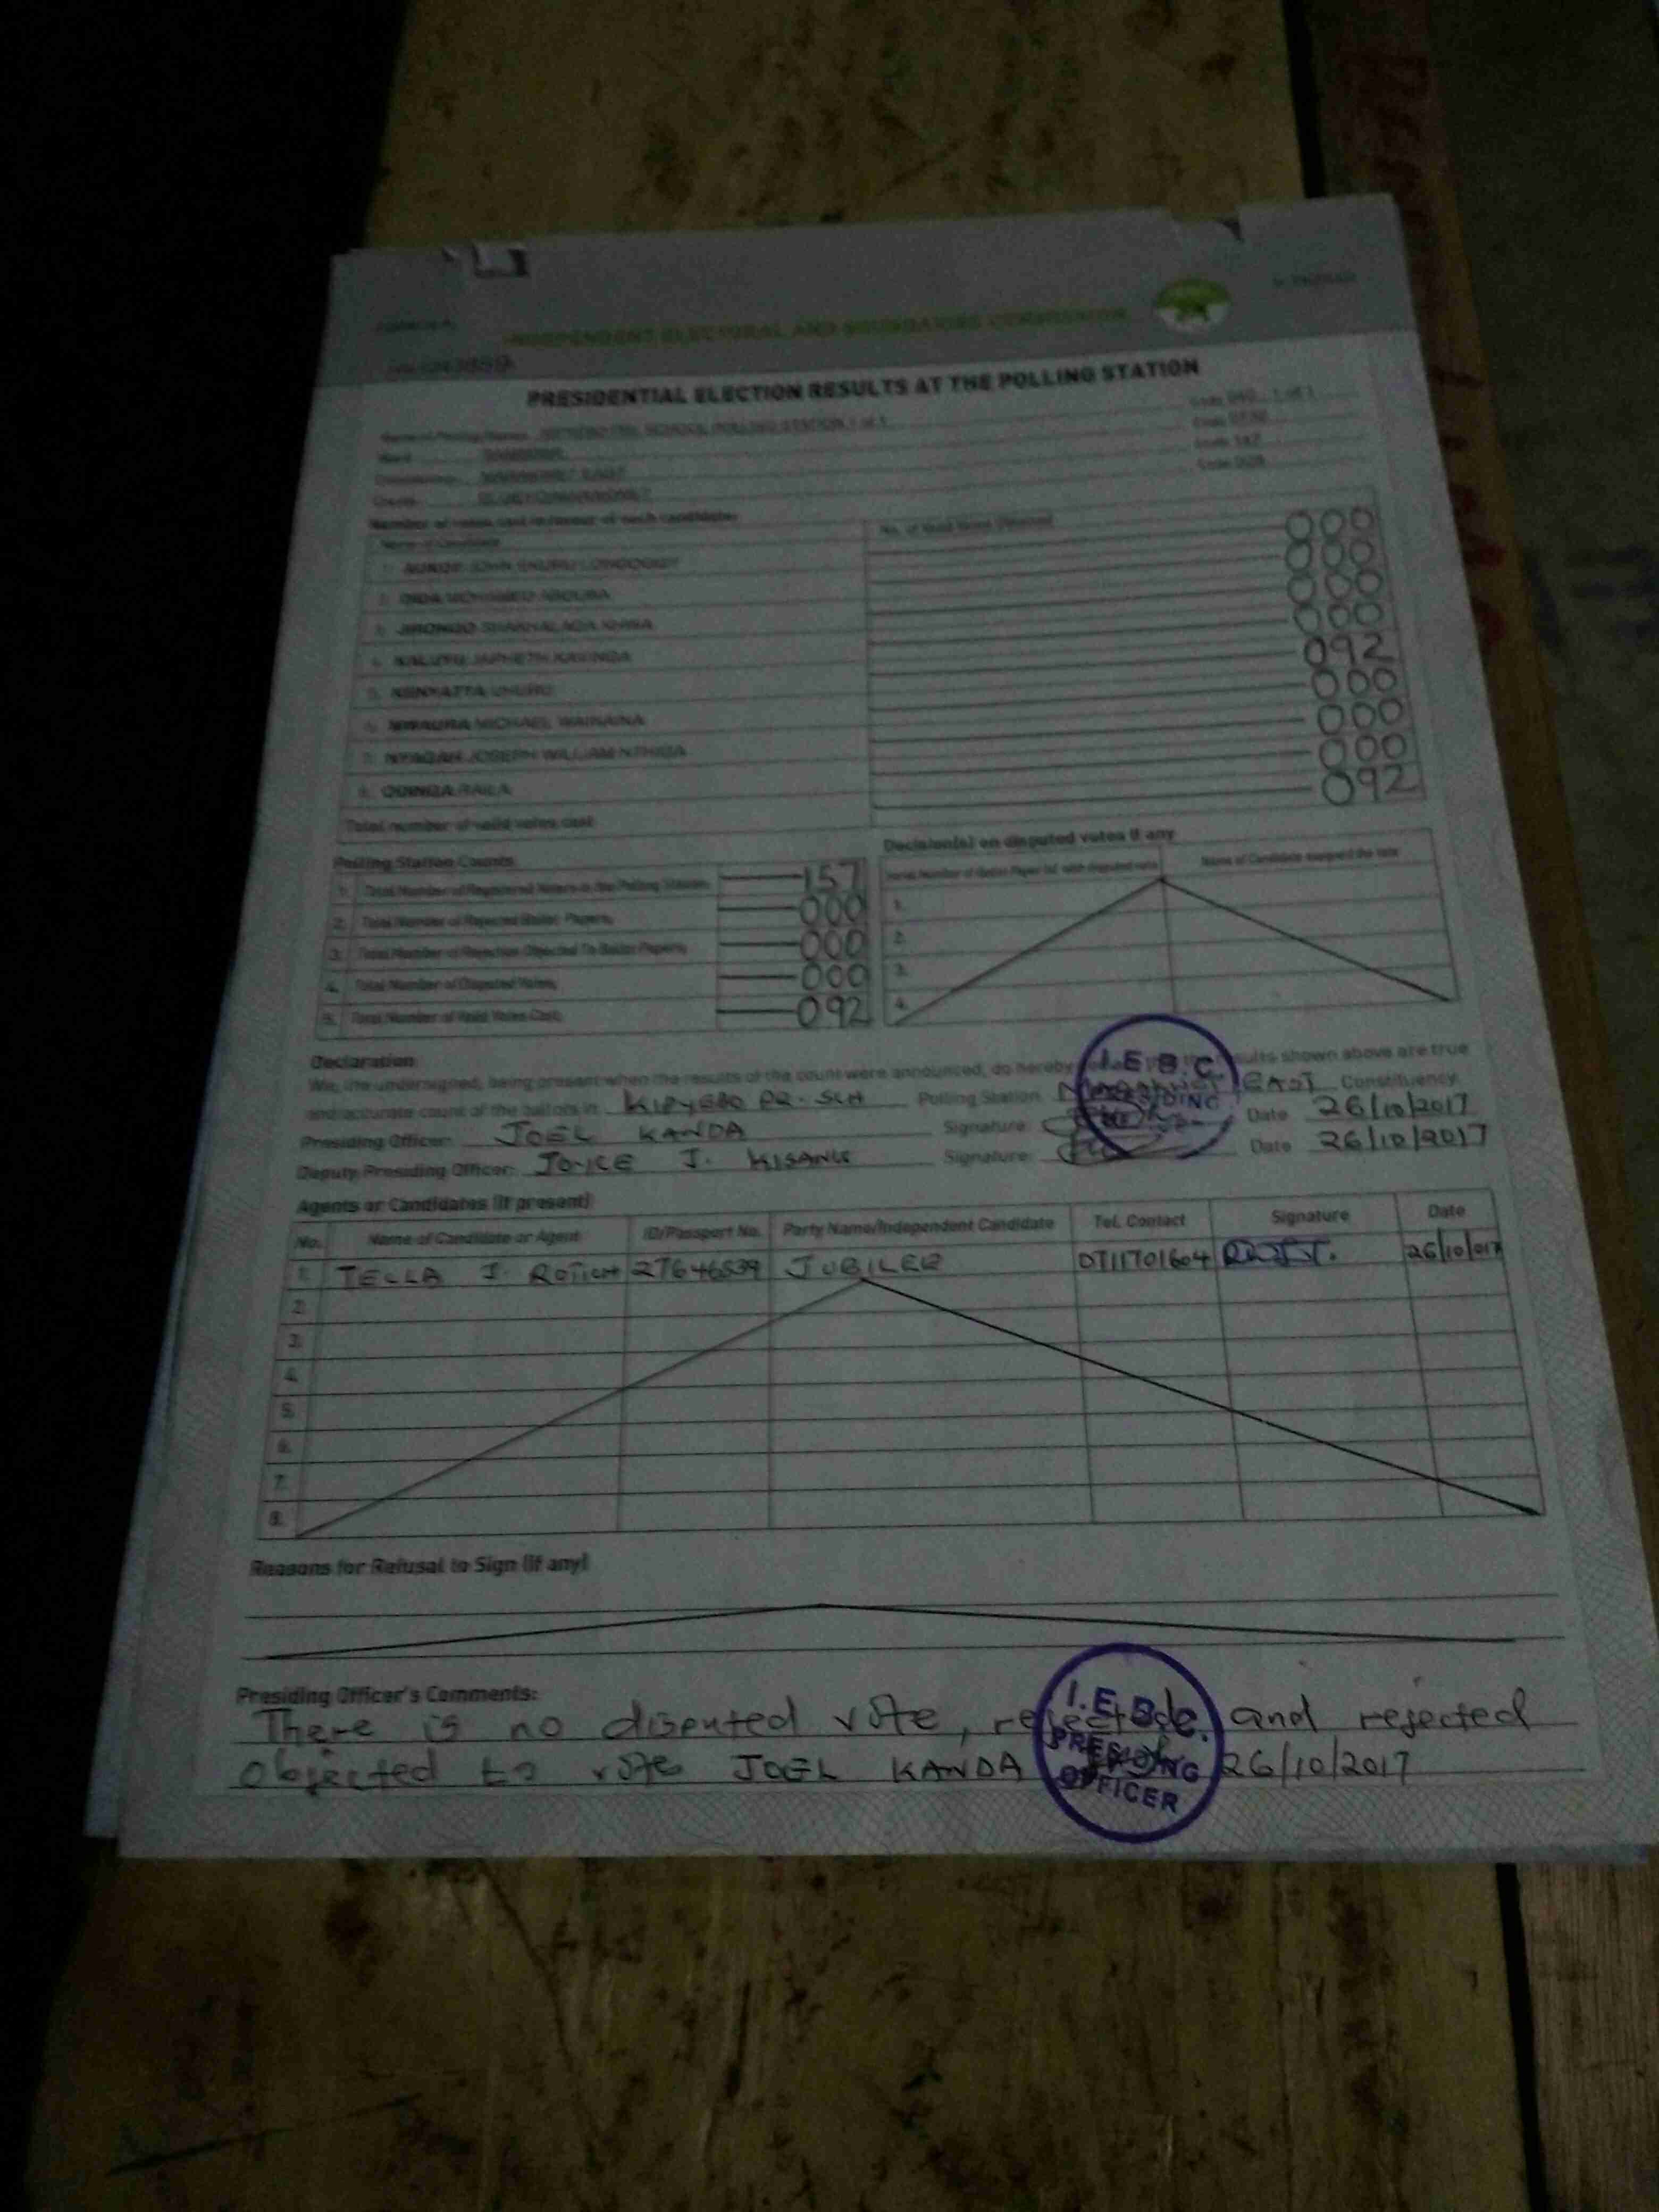 INDEPENDENT ELECTORAL AND BOUNDARIES COMMISSION
PRESIDENTIAL ELECTION RESULTS AT THE POLLING STATION
Number of votes cast in favour of each candidate
Name of Candidate No. of Valid Votes Obtained
000
2. DIDA MOHAMED ABDUBA 000
3. JIRONGO SHAKHALAGA KHWA 000
4. KALUYU JAPHETH KAVINGA 000
5. KENYATTA UHURU 092
6. MWAURA MICHAEL WAINAINA 000
7. NYAGAH JOSEPH WILLIAM NTHIGA 000
8. ODINGA RAILA 000
Total number of valid votes cast 092
Polling Station Counts
1. Total Number of Registered Voters in the Polling Station 157
2. Total Number of Rejected Ballot Papers 000
3. Total Number of Rejection Objected To Ballot Papers 000
4. Total Number of Disputed Votes 000
5. Total Number of Valid Votes Cast 092
Decision(s) on disputed votes if any
Serial Number of Ballot Paper (s) with disputed vote Name of Candidate assigned the vote
1.
2.
3.
4.
Declaration
We, the undersigned, being present when the results of the count were announced, do hereby results shown above are true
and accurate count of the ballots in KIPYEBO PR. SCH Polling Station EAST Constituency
Presiding Officer: JOEL KANDA Signature: Date 26/10/2017
Deputy Presiding Officer: JOYCE J. Signature: Date 26/10/2017
I.E.B.C
Agents or Candidates (if present)
No. Name of Candidate or Agent ID/Passport No. Party Name/Independent Candidate Tel. Contact Signature Date
1. TECLA J. ROTICH 27646539 JUBILEE 0711701604 26/10/017
2.
3.
4.
5.
6.
7.
8.
Reasons for Refusal to Sign (if any)
Presiding Officer's Comments:
There is no disputed vote, rejected and rejected
objected to vote JOEL KANDA 26/10/2017
I.E.B.C.
PRESIDING
OFFICER